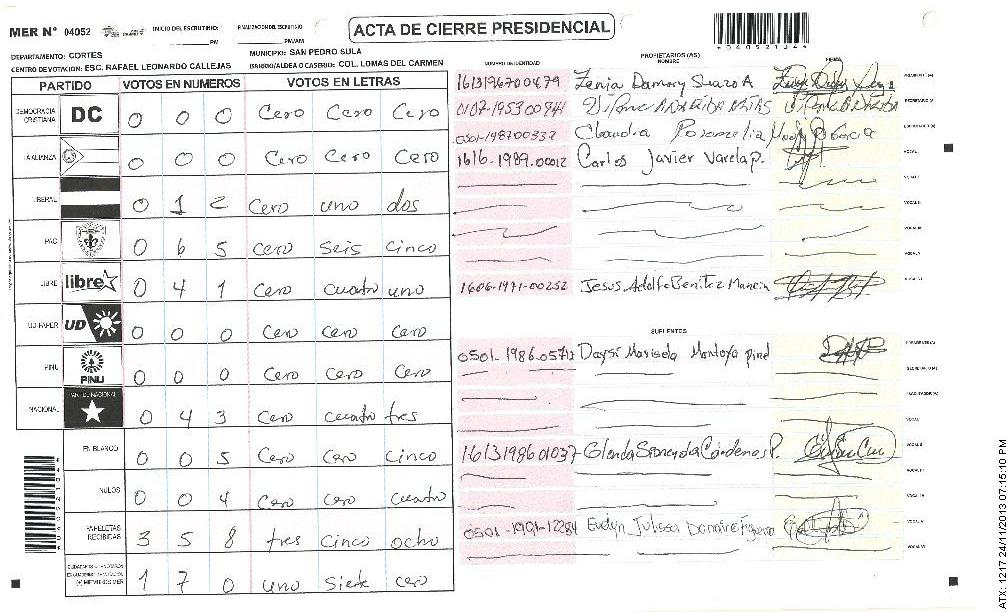 MER N° 04052 INICIO DEL ESCRUTINIO: PM FINALIZACION DEL ESCRUTINIO PM/AM
ACTA DE CIERRE PRESIDENCIAL
DEPARTAMENTO: CORTES MUNICIPIO: SAN PEDRO SULA
CENTRO DE VOTACION: ESC. RAFAEL LEONARDO CALLEJAS BARRIO/ALDEA O CASERIO: COL. LOMAS DEL CARMEN
PARTIDO VOTOS EN NUMEROS VOTOS EN LETRAS
DEMOCRACIA CRISTIANA DC 0 0 0 Cero Cero Cero
LA ALIANZA 0 0 0 Cero Cero Cero
LIBERAL 0 1 2 Cero uno dos
PAC 0 6 5 Cero seis cinco
LIBRE libre 0 4 1 Cero cuatro uno
UD-FAPER UD 0 0 0 Cero Cero Cero
PINU PINU 0 0 0 Cero Cero Cero
NACIONAL PARTIDO NACIONAL 0 4 3 Cero cuatro tres
EN BLANCO 0 0 5 Cero Cero Cinco
NULOS 0 0 4 Cero Cero cuatro
PAPELETAS RECIBIDAS 3 5 8 tres cinco ocho
(+) MIEMBROS MER 1 7 0 uno siete cero
PROPIETARIOS (AS)
NUMERO DE IDENTIDAD NOMBRE FIRMA
1613196700479 Zenia Damary Suazo A
0107-1953-00941
0501-198700332 Claudia
1616-1989-00012 Carlos Javier Varela P. VOCAL I
VOCAL II
VOCAL III
VOCAL IV
VOCAL V
1606-1971-00252 Jesus Adolfo Benitez Mancia VOCAL VI
SUPLENTES
0501-1986-05713 Daysi Marisela Montoya pined PRESIDENTE (A)
SECRETARIO (A)
ESCRUTADOR (A)
VOCAL I
1613198601037 Glenda Cardenas P. VOCAL II
VOCAL III
VOCAL IV
0501-1991-12284 Evelyn Julissa Donaire Figueroa VOCAL V
VOCAL VI
4 0 4 0 5 2 1 0 4 4
ATX: 1217.24/11/2013 07:15:10 PM